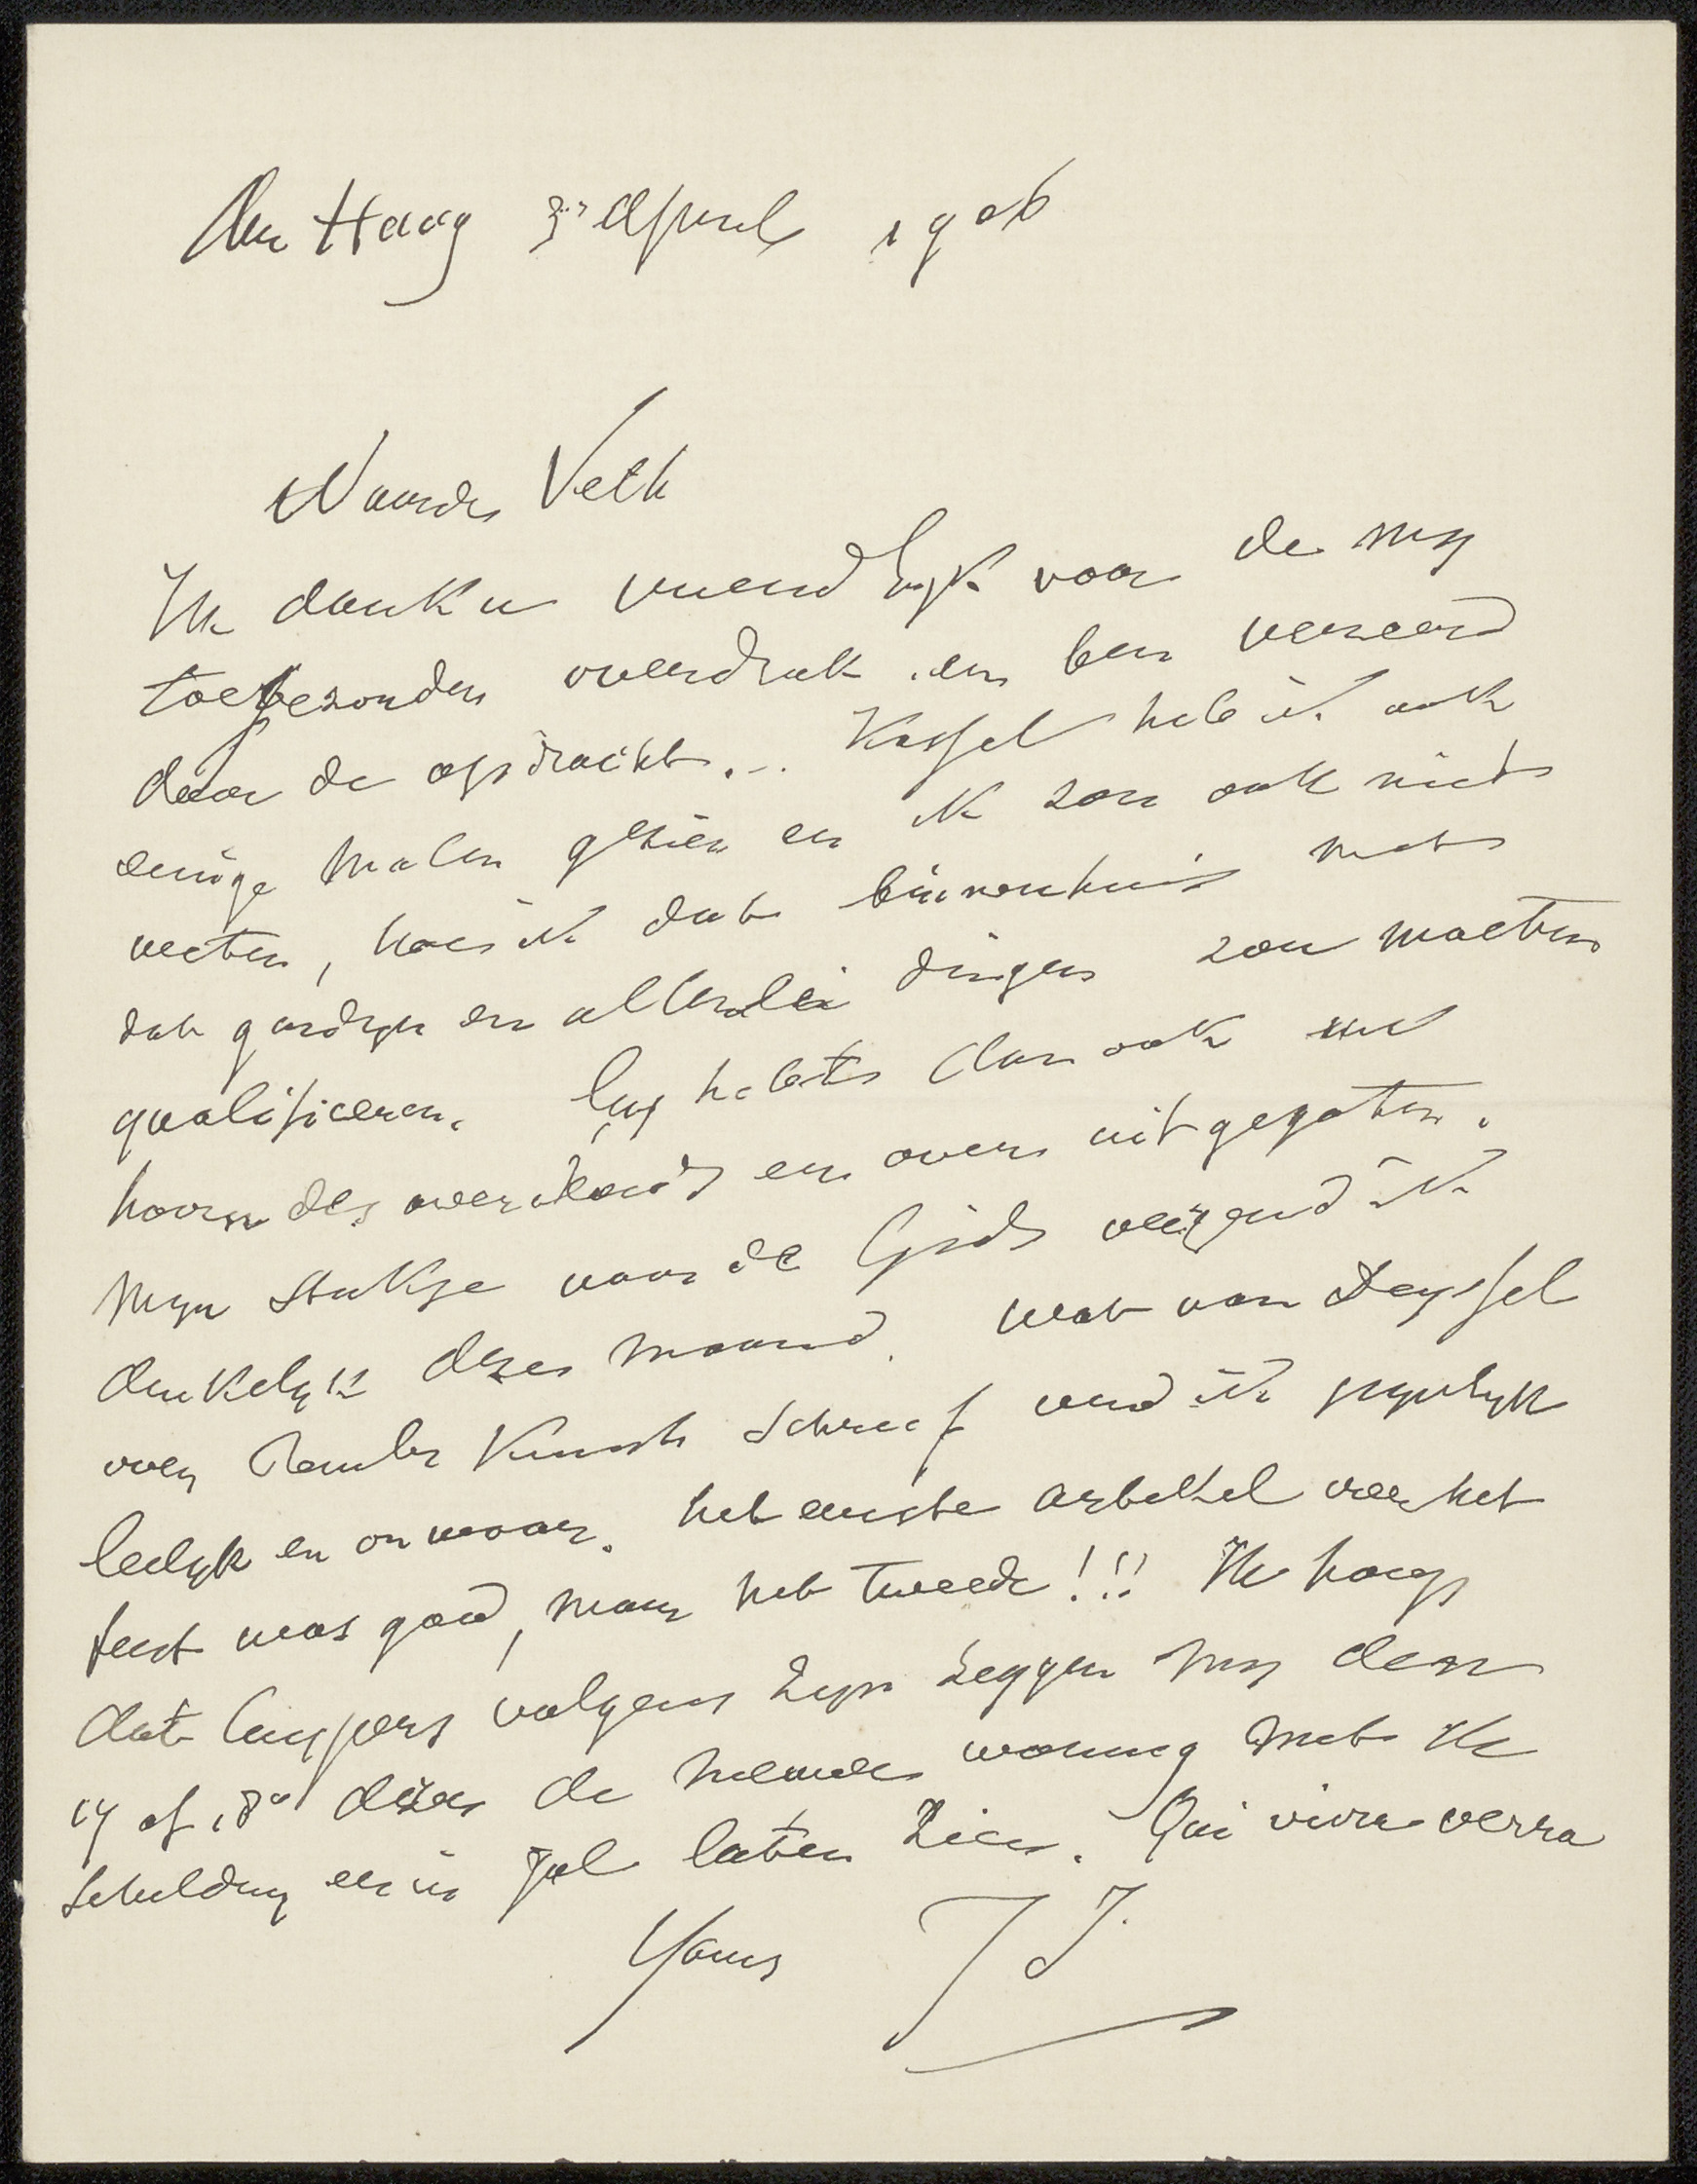 Den Haag 3 April 1906
Waarde Veth
Ik dank u vriendlyk voor de my
toegezonden overdruk en ben vereerd
door de opdracht. Kassel heb ik ook
eenige malen gezien en ik zou ook niet
weten, hoe ik dat binnenhuis met
dat gordyn en allerlei dingen zou moeten
qualificeren. Gy hebt dan ook uw
hoorn des overvloeds er over uitgegoten.
Myn stukje voor de Gids verzend ik
denkelyk deze maand. wat van Deyssel
over Rembr Kunst schreef vind ik
leelyk en onwaar. het eerste artikel over het
feest was goed, maar het tweede!!! Ik hoop
dat Cuypers volgens zyn zeggen my den
17 of 18e dezer de nieuwe woning met de
schildery er in zal laten zien. Qui vivra verra
Yours JI